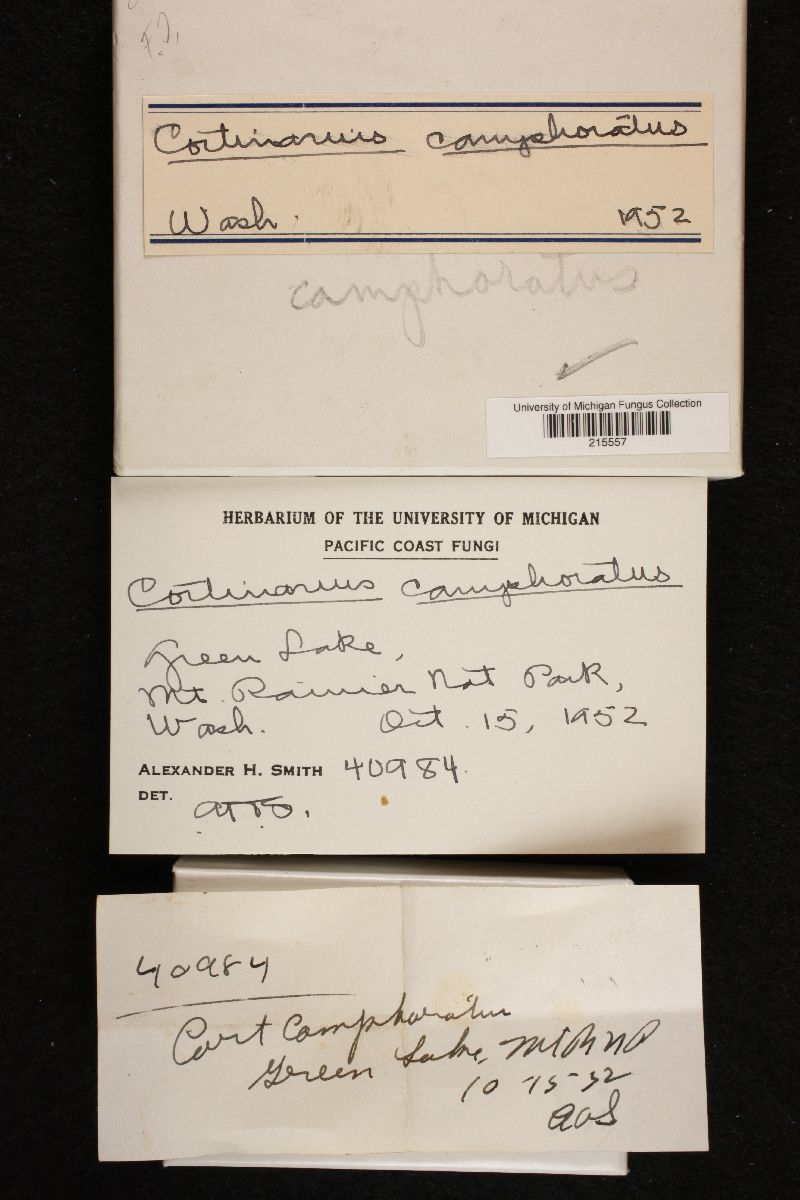 Cortinarius camphoratus
Wash. 1952
camphoratus
University of Michigan Fungus Collection
215557
HERBARIUM OF THE UNIVERSITY OF MICHIGAN
PACIFIC COAST FUNGI
Cortinarius camphoratus
Green Lake,
Mt. Rainier Nat Park,
Wash. Oct. 15, 1952
ALEXANDER H. SMITH 40984.
DET.
40984
Cort Camphoratus
Green Lake, MtRNP
10-15-52